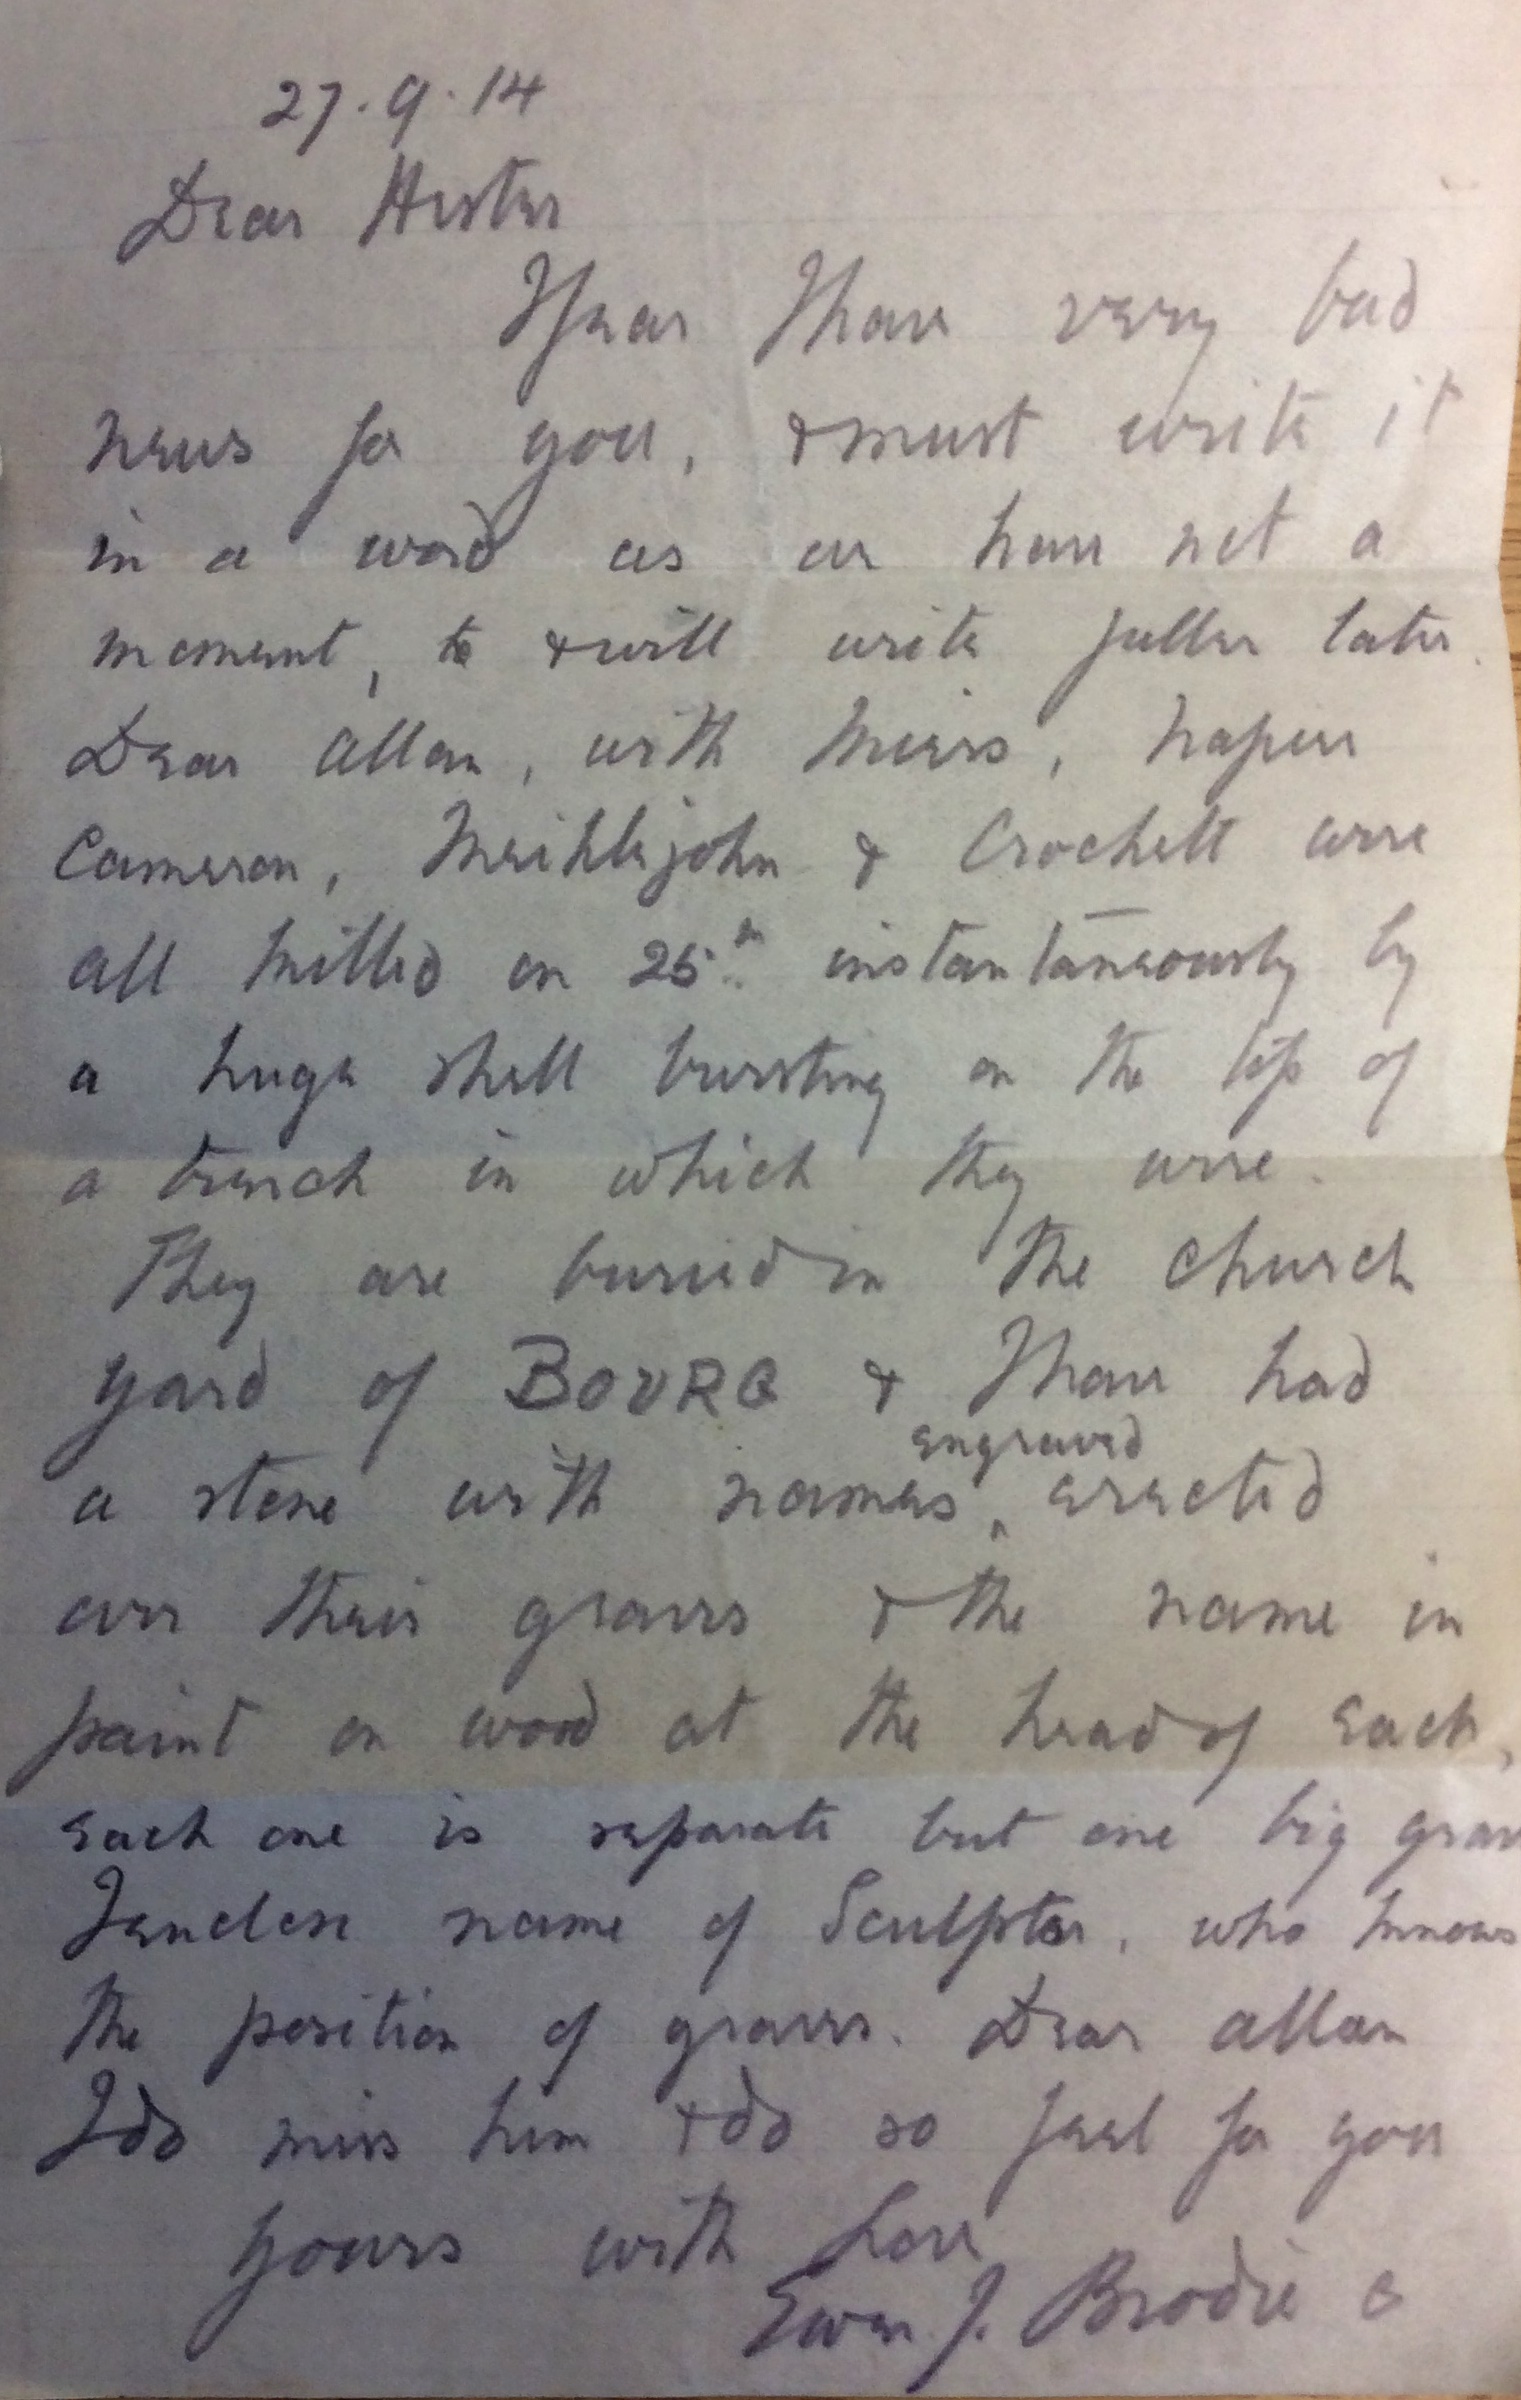 27.9.14
Dear Hester
I fear I have very bad
news for you, & must write it
in a word as we have not a
moment, to & will write fuller later.
Dear Allan, with Miers, Napier
Cameron, Meiklejohn & Crockett were
all killed on 25th instantaneously by
a huge shell bursting on the top of
a trench in which they were.
They are buried in the church
yard of BOURG & I have had
a stone with names engraved erected
over their graves & the name in
paint on wood at the head of each,
each one is separate but one big grave
I enclose name of Sculptor, who knows
the position of graves. Dear Allan
I do miss him & do so feel for you
yours with love
Ewen J. Brodie